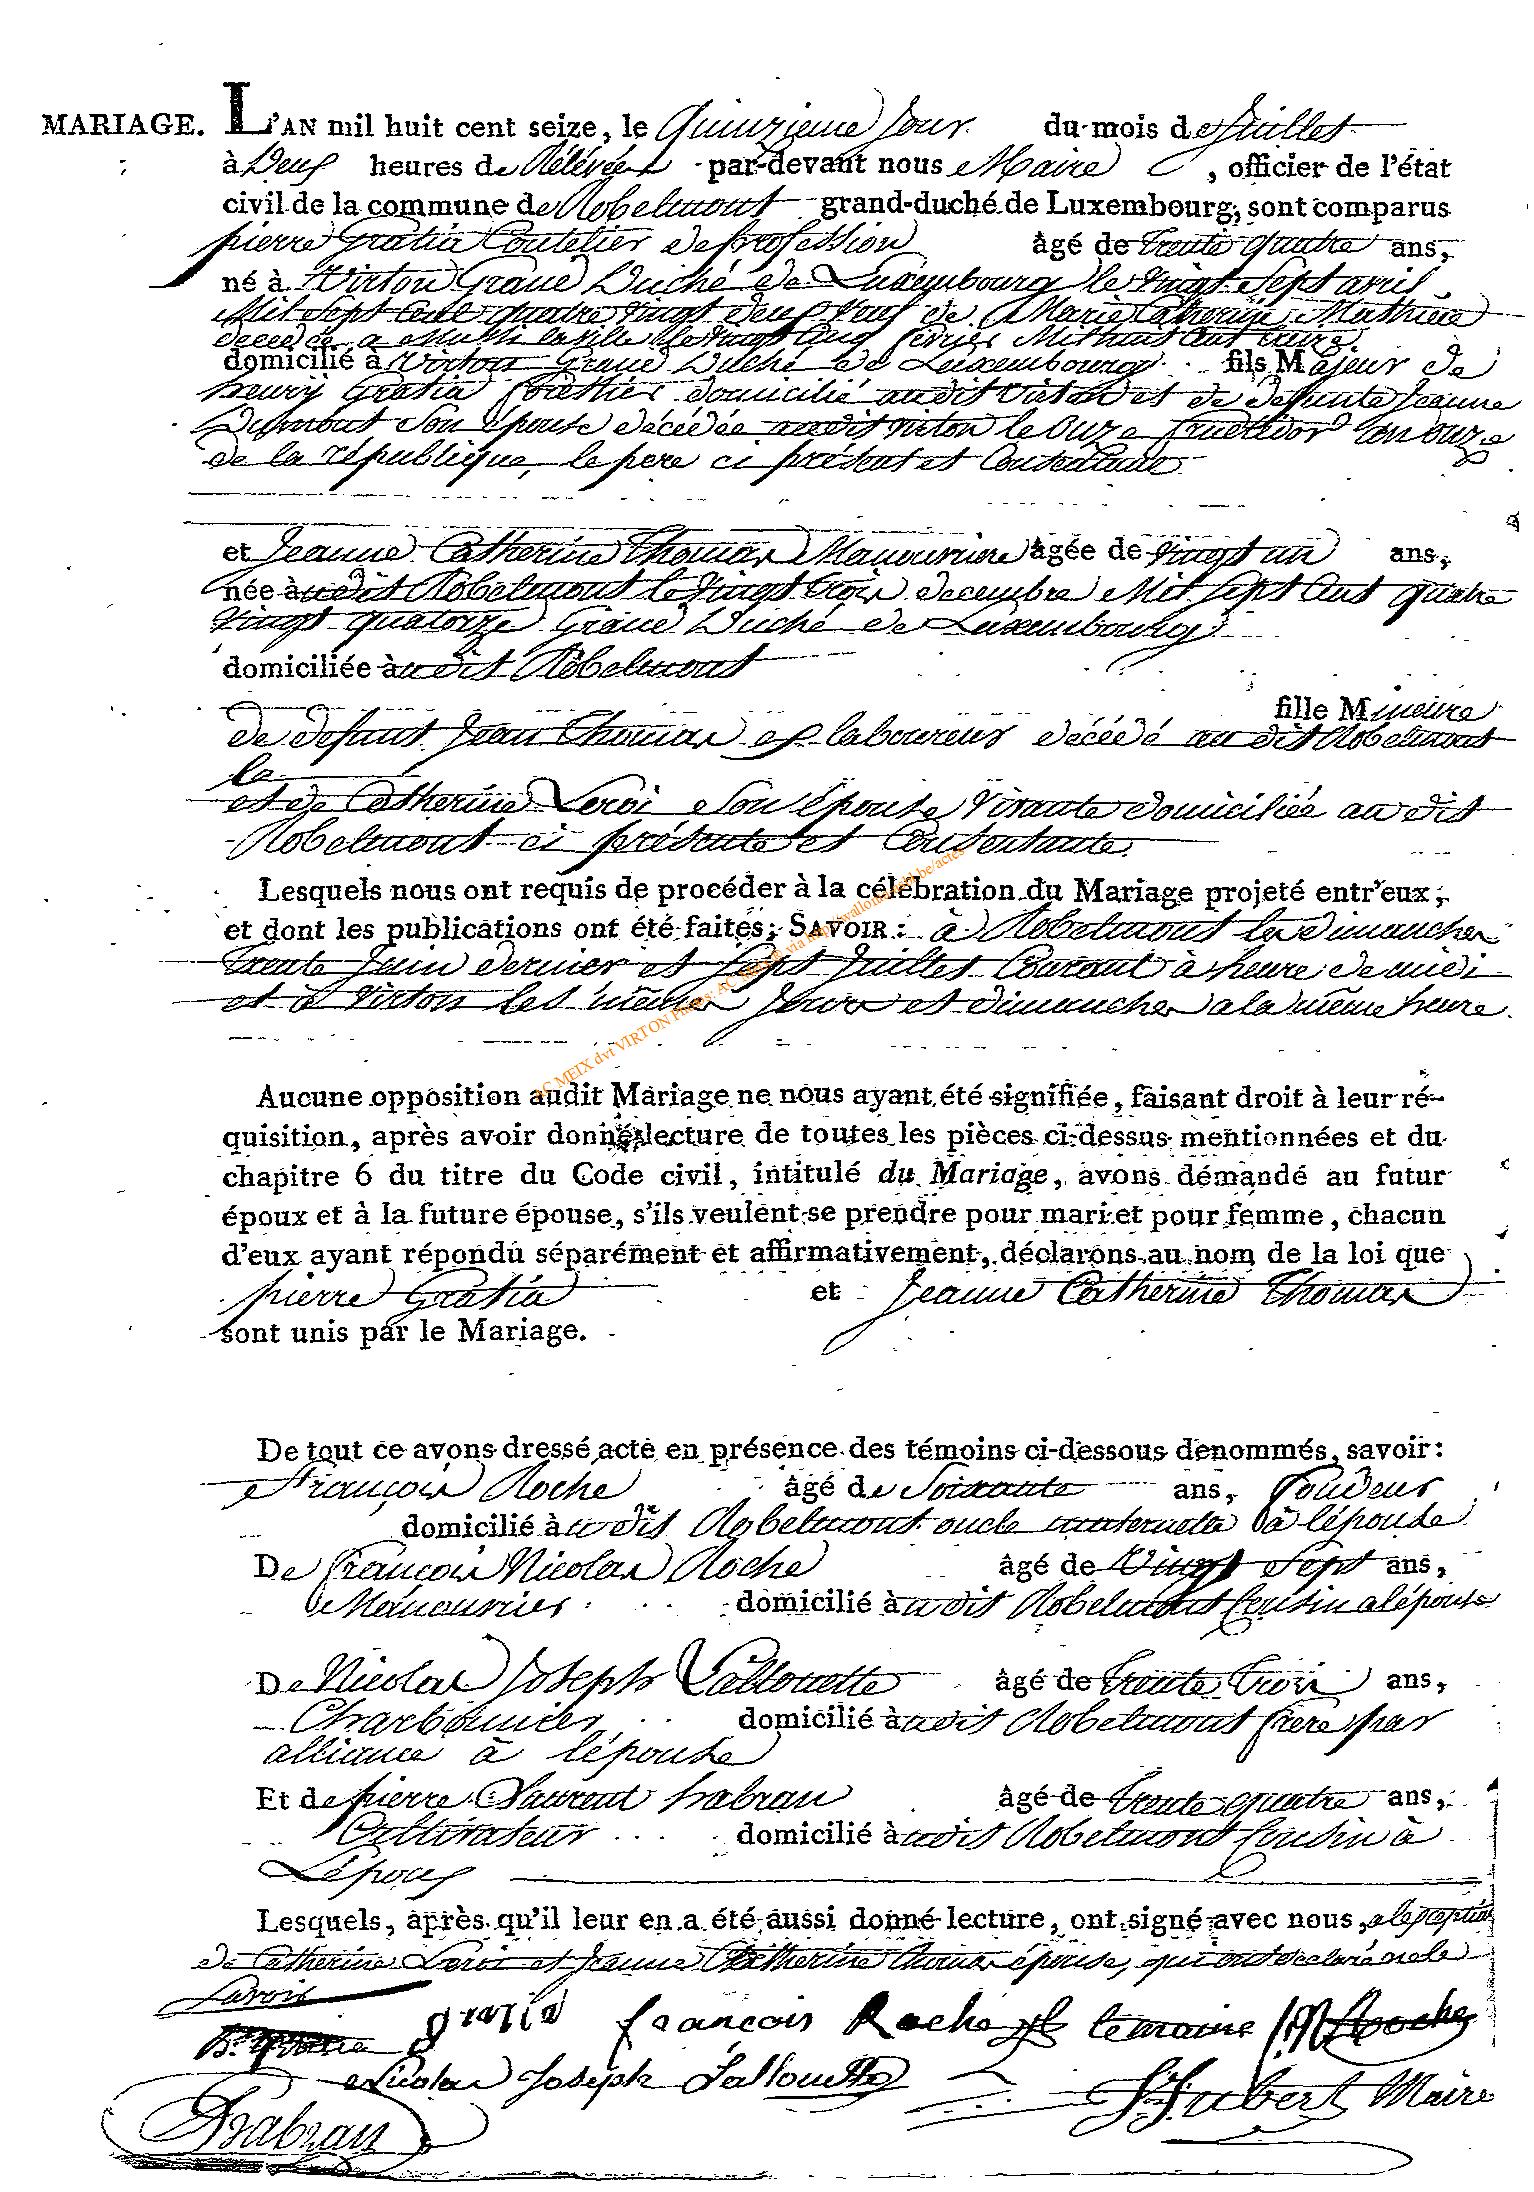 MARIAGE. L'AN mil huit cent seize, le Quinzieme Jour du mois de Juillet
à Deux heures de Rélévée par-devant nous Maire , officier de l'état
civil de la commune de Robelmont grand-duché de Luxembourg, sont comparus
pierre Gratia Coutelier de profession âgé de trente quatre ans,
né à Virton Grand Duché de Luxembourg le vingt Sept avril
Mil Sept Cent quatre vingt deux veuf de Marie Catherine Mathieu
décédée a la ville le vingt Cinq février Mil huit Cent
domicilié à Virton Grand Duché de Luxembourg fils Majeur de
henry Gratia domicilié au dit Virton et de defunte Jeanne
Dumont Son épouse décédée au dit virton le Onze fructidor an onze
de la république, le pere ci présent et Consentant
et Jeanne Catherine Thomas Manouvriere âgée de vingt un ans,
née à au dit Robelmont le vingt trois decembre Mil Sept Cent quatre
vingt quatorze Grand Duché de Luxembourg
domiciliée à au dit Robelmont
fille Mineure
de defunt Jean Thomas laboureur décédé au dit Robelmont
le
et de Catherine Leroi Son épouse vivante domiciliée au dit
Robelmont ci présente et Consentante.
Lesquels nous ont requis de procéder à la célébration du Mariage projeté entr'eux,
et dont les publications ont été faites; SAVOIR: à Robelmont les dimanches
trente Juin dernier et Sept Juillet Courant à heure de midi
et à Virton les mêmes Jours et dimanches a la même heure.
AC MEIX dvt VIRTON
Aucune opposition audit Mariage ne nous ayant été signifiée, faisant droit à leur ré-
quisition, après avoir donné lecture de toutes les pièces ci-dessus mentionnées et du
chapitre 6 du titre du Code civil, intitulé du Mariage, avons démandé au futur
époux et à la future épouse, s'ils veulent se prendre pour mari et pour femme, chacun
d'eux ayant répondu séparément et affirmativement, déclarons au nom de la loi que
pierre Gratia et Jeanne Catherine Thomas
sont unis par le Mariage.
De tout ce avons dressé acte en présence des témoins ci-dessous denommés, savoir:
François Roche âgé de Soixante ans,
domicilié à au dit Robelmont oncle maternelle à lépouse
De François Nicolas Roche âgé de Vingt Sept ans,
Manouvrier domicilié à au dit Robelmont Cousin a lépouse
De Nicolas Joseph Lallouette âgé de trente trois ans,
Charbonnier domicilié à au dit Robelmont frère par
alliance à lépouse
Et de pierre Laurent habran âgé de trente quatre ans,
Cultivateur domicilié à au dit Robelmont Cousin à
Lépoux
Lesquels, après qu'il leur en a été aussi donné lecture, ont signé avec nous, a lexception
de Catherine Leroi et Jeanne Catherine Thomas épouse, qui ont déclaré ne le
Savoir
gratia françois Roche temoins Roche
Nicolas Joseph Lallouette Hubert Maire
habran